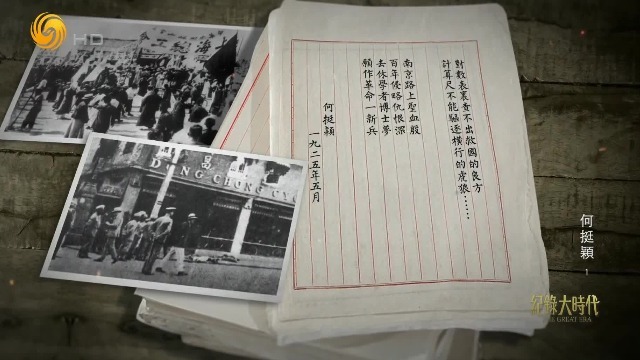 HD
對數表裏查不出救國的良方
計算尺不能驅逐橫行的虎狼……
南京路上聖血殷
百年侵略仇恨深
去休學者博士夢
願作革命一新兵
何挺穎
一九二五年五月
何挺穎
1
紀錄大時代
GREAT ERA